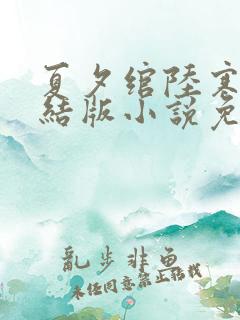 夏夕綰陸寒
結版小說免
亂步非鱼
未经同意禁止转载